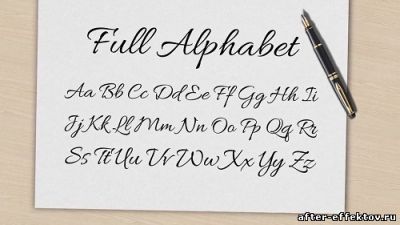 Full Alphabet
Aa Bb Cc Dd Ee Ff Gg Hh Ii
Jj Kk Ll Mm Nn Oo Pp Qq Rr
Ss Tt Uu Vv Ww Xx Yy Zz
after-effektov.ru